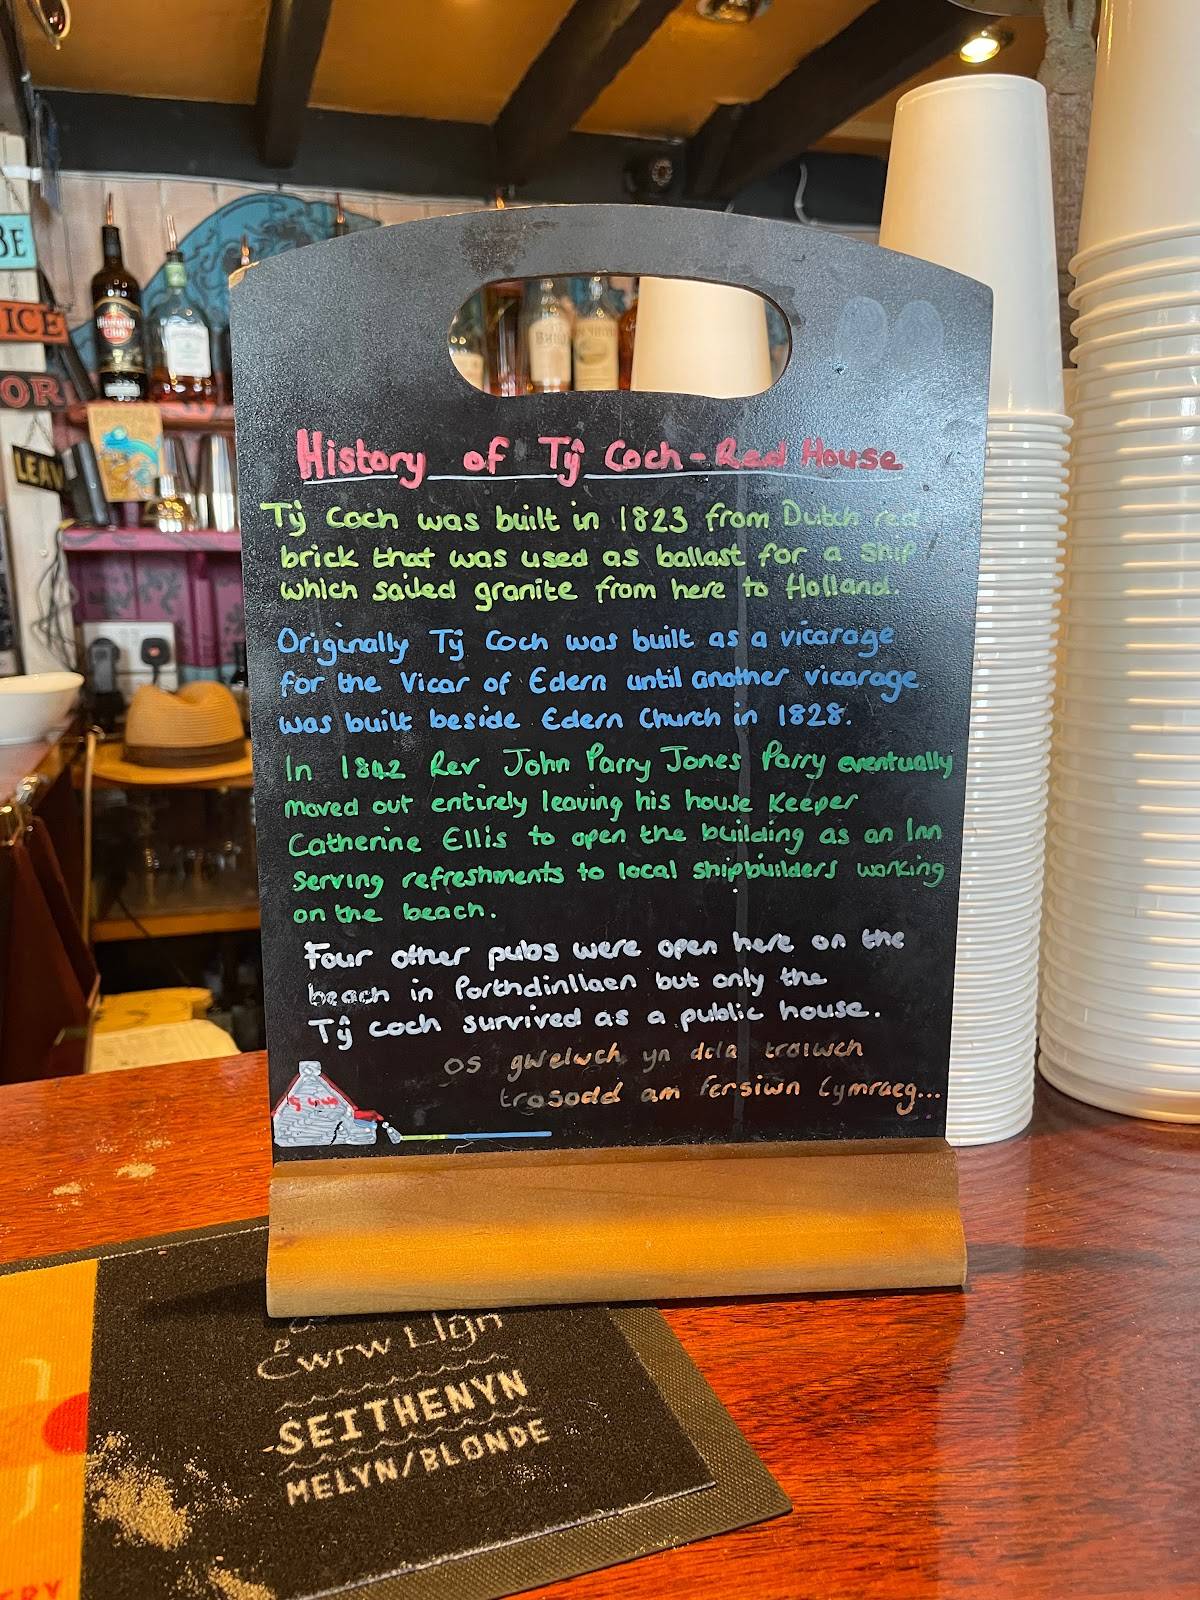 BE
ICE
OR
LEAV
Havana Club
History of Tŷ Coch - Red House
Tŷ Coch was built in 1823 from Dutch red
brick that was used as ballast for a ship
which sailed granite from here to Holland.
Originally Tŷ Coch was built as a vicarage
for the Vicar of Edern until another vicarage
was built beside Edern Church in 1828.
In 1842 Rev John Parry Jones Parry eventually
moved out entirely leaving his house Keeper
Catherine Ellis to open the building as an Inn
serving refreshments to local shipbuilders working
on the beach.
Four other pubs were open here on the
beach in Porthdinllaen but only the
Tŷ coch survived as a public house.
os gwelwch yn dda troiwch
trosodd am fersiwn Cymraeg...
Cwrw Llŷn
SEITHENYN
MELYN/BLONDE
ERY